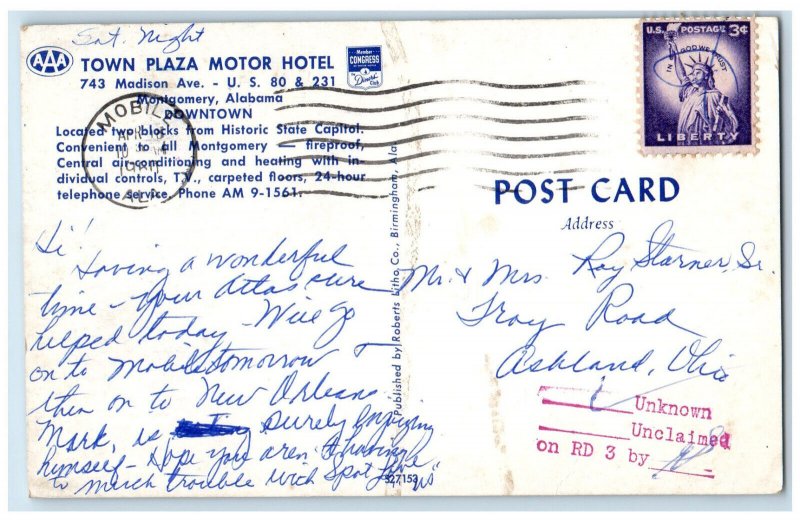 Sat. Night
AAA
TOWN PLAZA MOTOR HOTEL
743 Madison Ave. - U. S. 80 & 231
Montgomery, Alabama
DOWNTOWN
Located two blocks from Historic State Capitol.
Convenient to all Montgomery — fireproof,
Central air-conditioning and heating with in-
dividual controls, T.V., carpeted floors, 24-hour
telephone service. Phone AM 9-1561.
Member
CONGRESS
Diners'
Club
MOBILE
APR
ALA.
U.S. POSTAGE 3¢
IN GOD WE TRUST
LIBERTY
POST CARD
Address
Hi!
Having a wonderful
time - Your Atlas sure
helped today - We'll go
on to Mobile tomorrow &
then on to New Orleans.
Mark, is surely enjoying
himself - Hope you aren't having
to much trouble with Spot Love
us
Published by Roberts Litho, Co., Birmingham, Ala.
327153
Mr. & Mrs. Roy Starner, Sr.
Troy Road
Ashland, Ohio
Unknown
Unclaimed
on RD 3 by